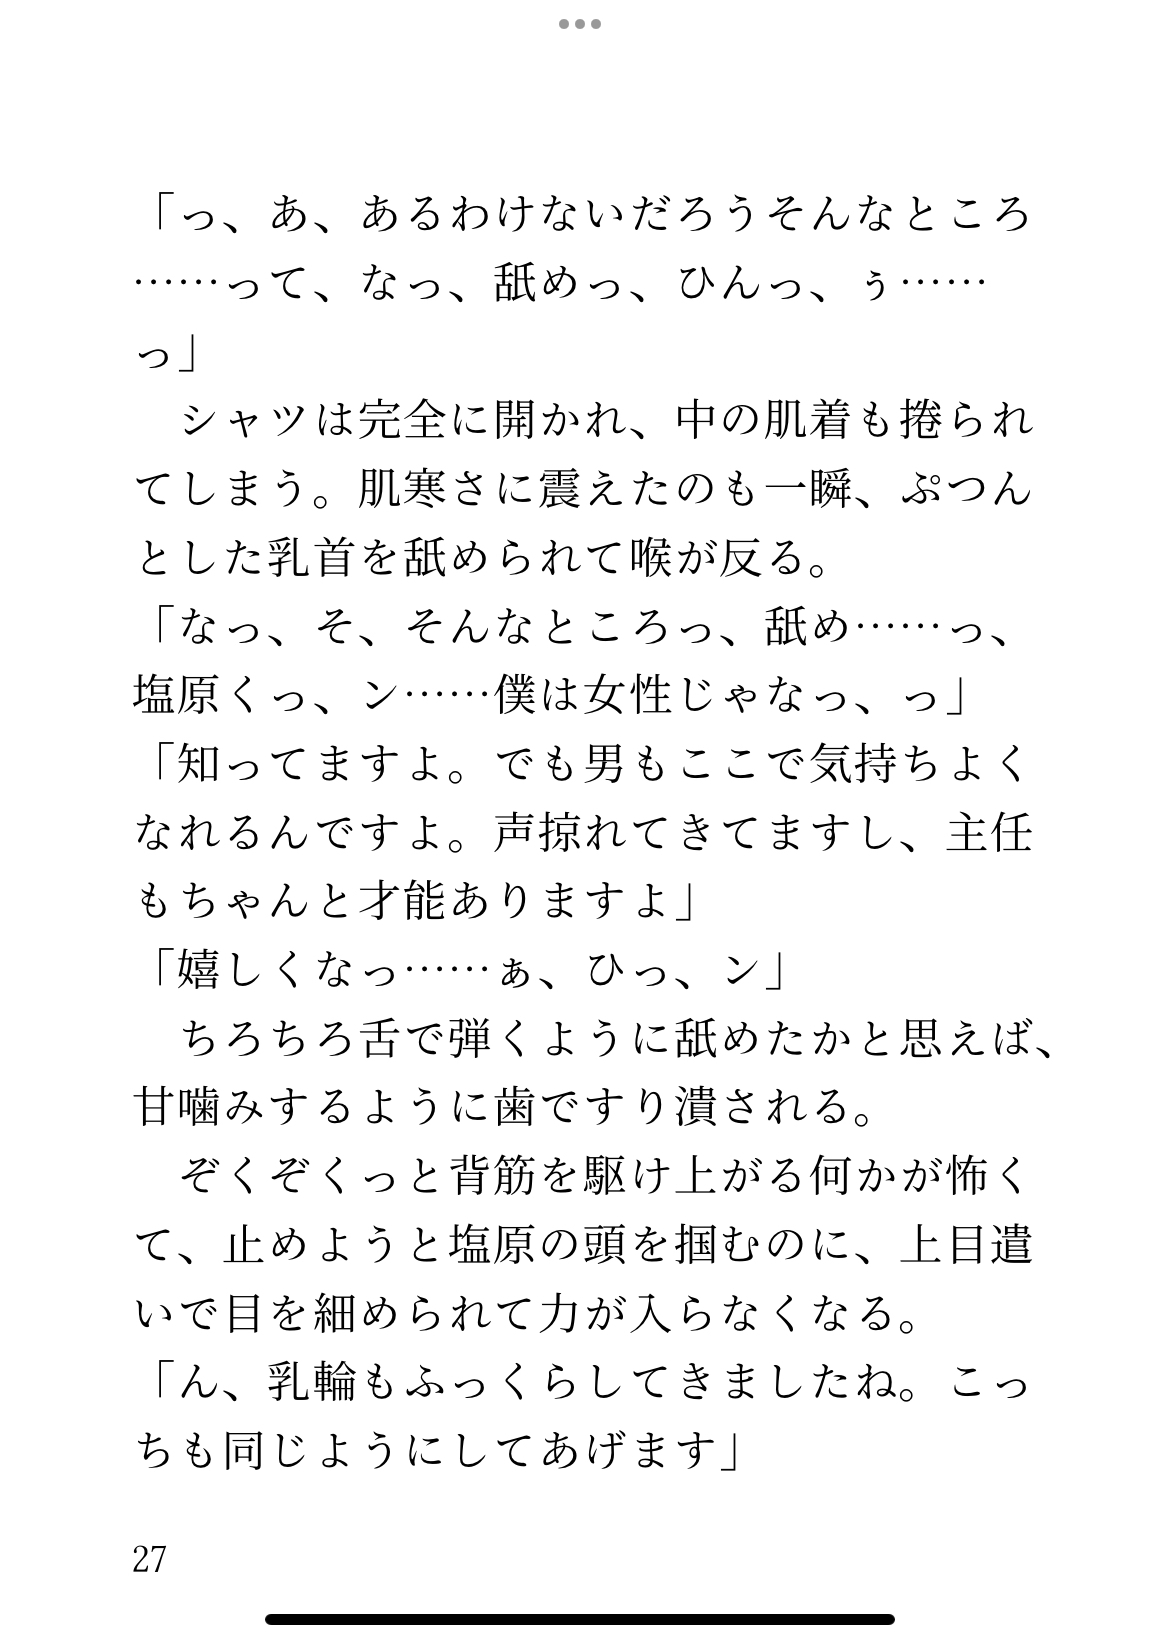 「っ、あ、あるわけないだろうそんなところ
……って、なっ、舐めっ、ひんっ、ぅ……
っ」
　シャツは完全に開かれ、中の肌着も捲られ
てしまう。肌寒さに震えたのも一瞬、ぷつん
とした乳首を舐められて喉が反る。
「なっ、そ、そんなところっ、舐め……っ、
塩原くっ、ン……僕は女性じゃなっ、っ」
「知ってますよ。でも男もここで気持ちよく
なれるんですよ。声掠れてきてますし、主任
もちゃんと才能ありますよ」
「嬉しくなっ……ぁ、ひっ、ン」
　ちろちろ舌で弾くように舐めたかと思えば、
甘噛みするように歯ですり潰される。
　ぞくぞくっと背筋を駆け上がる何かが怖く
て、止めようと塩原の頭を掴むのに、上目遣
いで目を細められて力が入らなくなる。
「ん、乳輪もふっくらしてきましたね。こっ
ちも同じようにしてあげます」
27